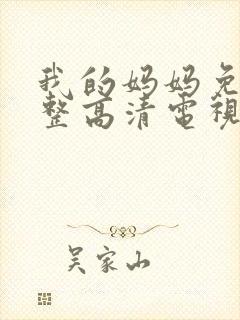 我的妈妈免
整高清电视
吴家山